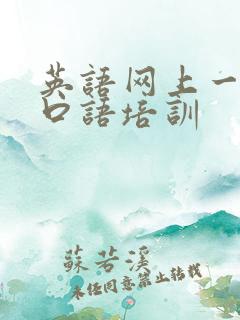 英語网上一
口語培訓
蘇若溪
未经同意禁止转载